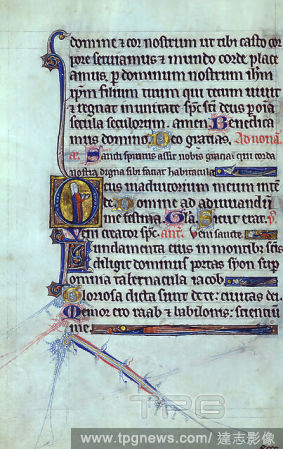 domine & cor nostrum ut tibi casto cor
pore seruiamus & mundo corde place
amus. p dominum nostrum ihm
xpm filium tuum qui tecum uiuit
& regnat in unitate spc sci deus p oia
secula seculorum. amen. Benedica
mus domino. Deo gratias. Ad nonā
Sancti spiritus assit nobis gratia. qui corda
nostra digna sibi faciat habitacula
Deus in adiutorium meum intē
de. Domine ad adiuuandū
me festina. Gla. Sicut erat. p.
Veni creator spc. añ. Veni sancte.
Fundamenta eius in montibus scis
diligit dominus portas syon sup
omnia tabernacula iacob.
Gloriosa dicta sunt de te: ciuitas dei.
Memor ero raab & babilonis: scientiū
me.
TPG
www.tpgnews.com / 達志影像